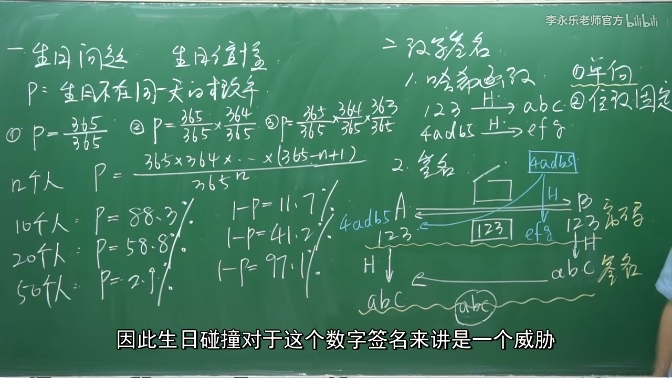 李永乐老师官方 bilibili
一 生日问题 生日碰撞
P: 生日不在同一天的概率
① P=365/365 ② P=365/365×364/365 ③ P=365/365×364/365×363/365
n个人 P=365×364×...×(365-n+1)/365^n
10个人: P=88.3% 1-P=11.7%
20个人: P=58.8% 1-P=41.2%
50个人: P=2.9% 1-P=97.1%
二 数字签名
1. 哈希函数 ①单向
123 H→ abc ②位数固定
4adb5 H→ efg
2. 签名 4adb5
H
4adb5 A B
123 123 efg 123 密码
H H
abc 签名
abc abc
因此生日碰撞对于这个数字签名来讲是一个威胁